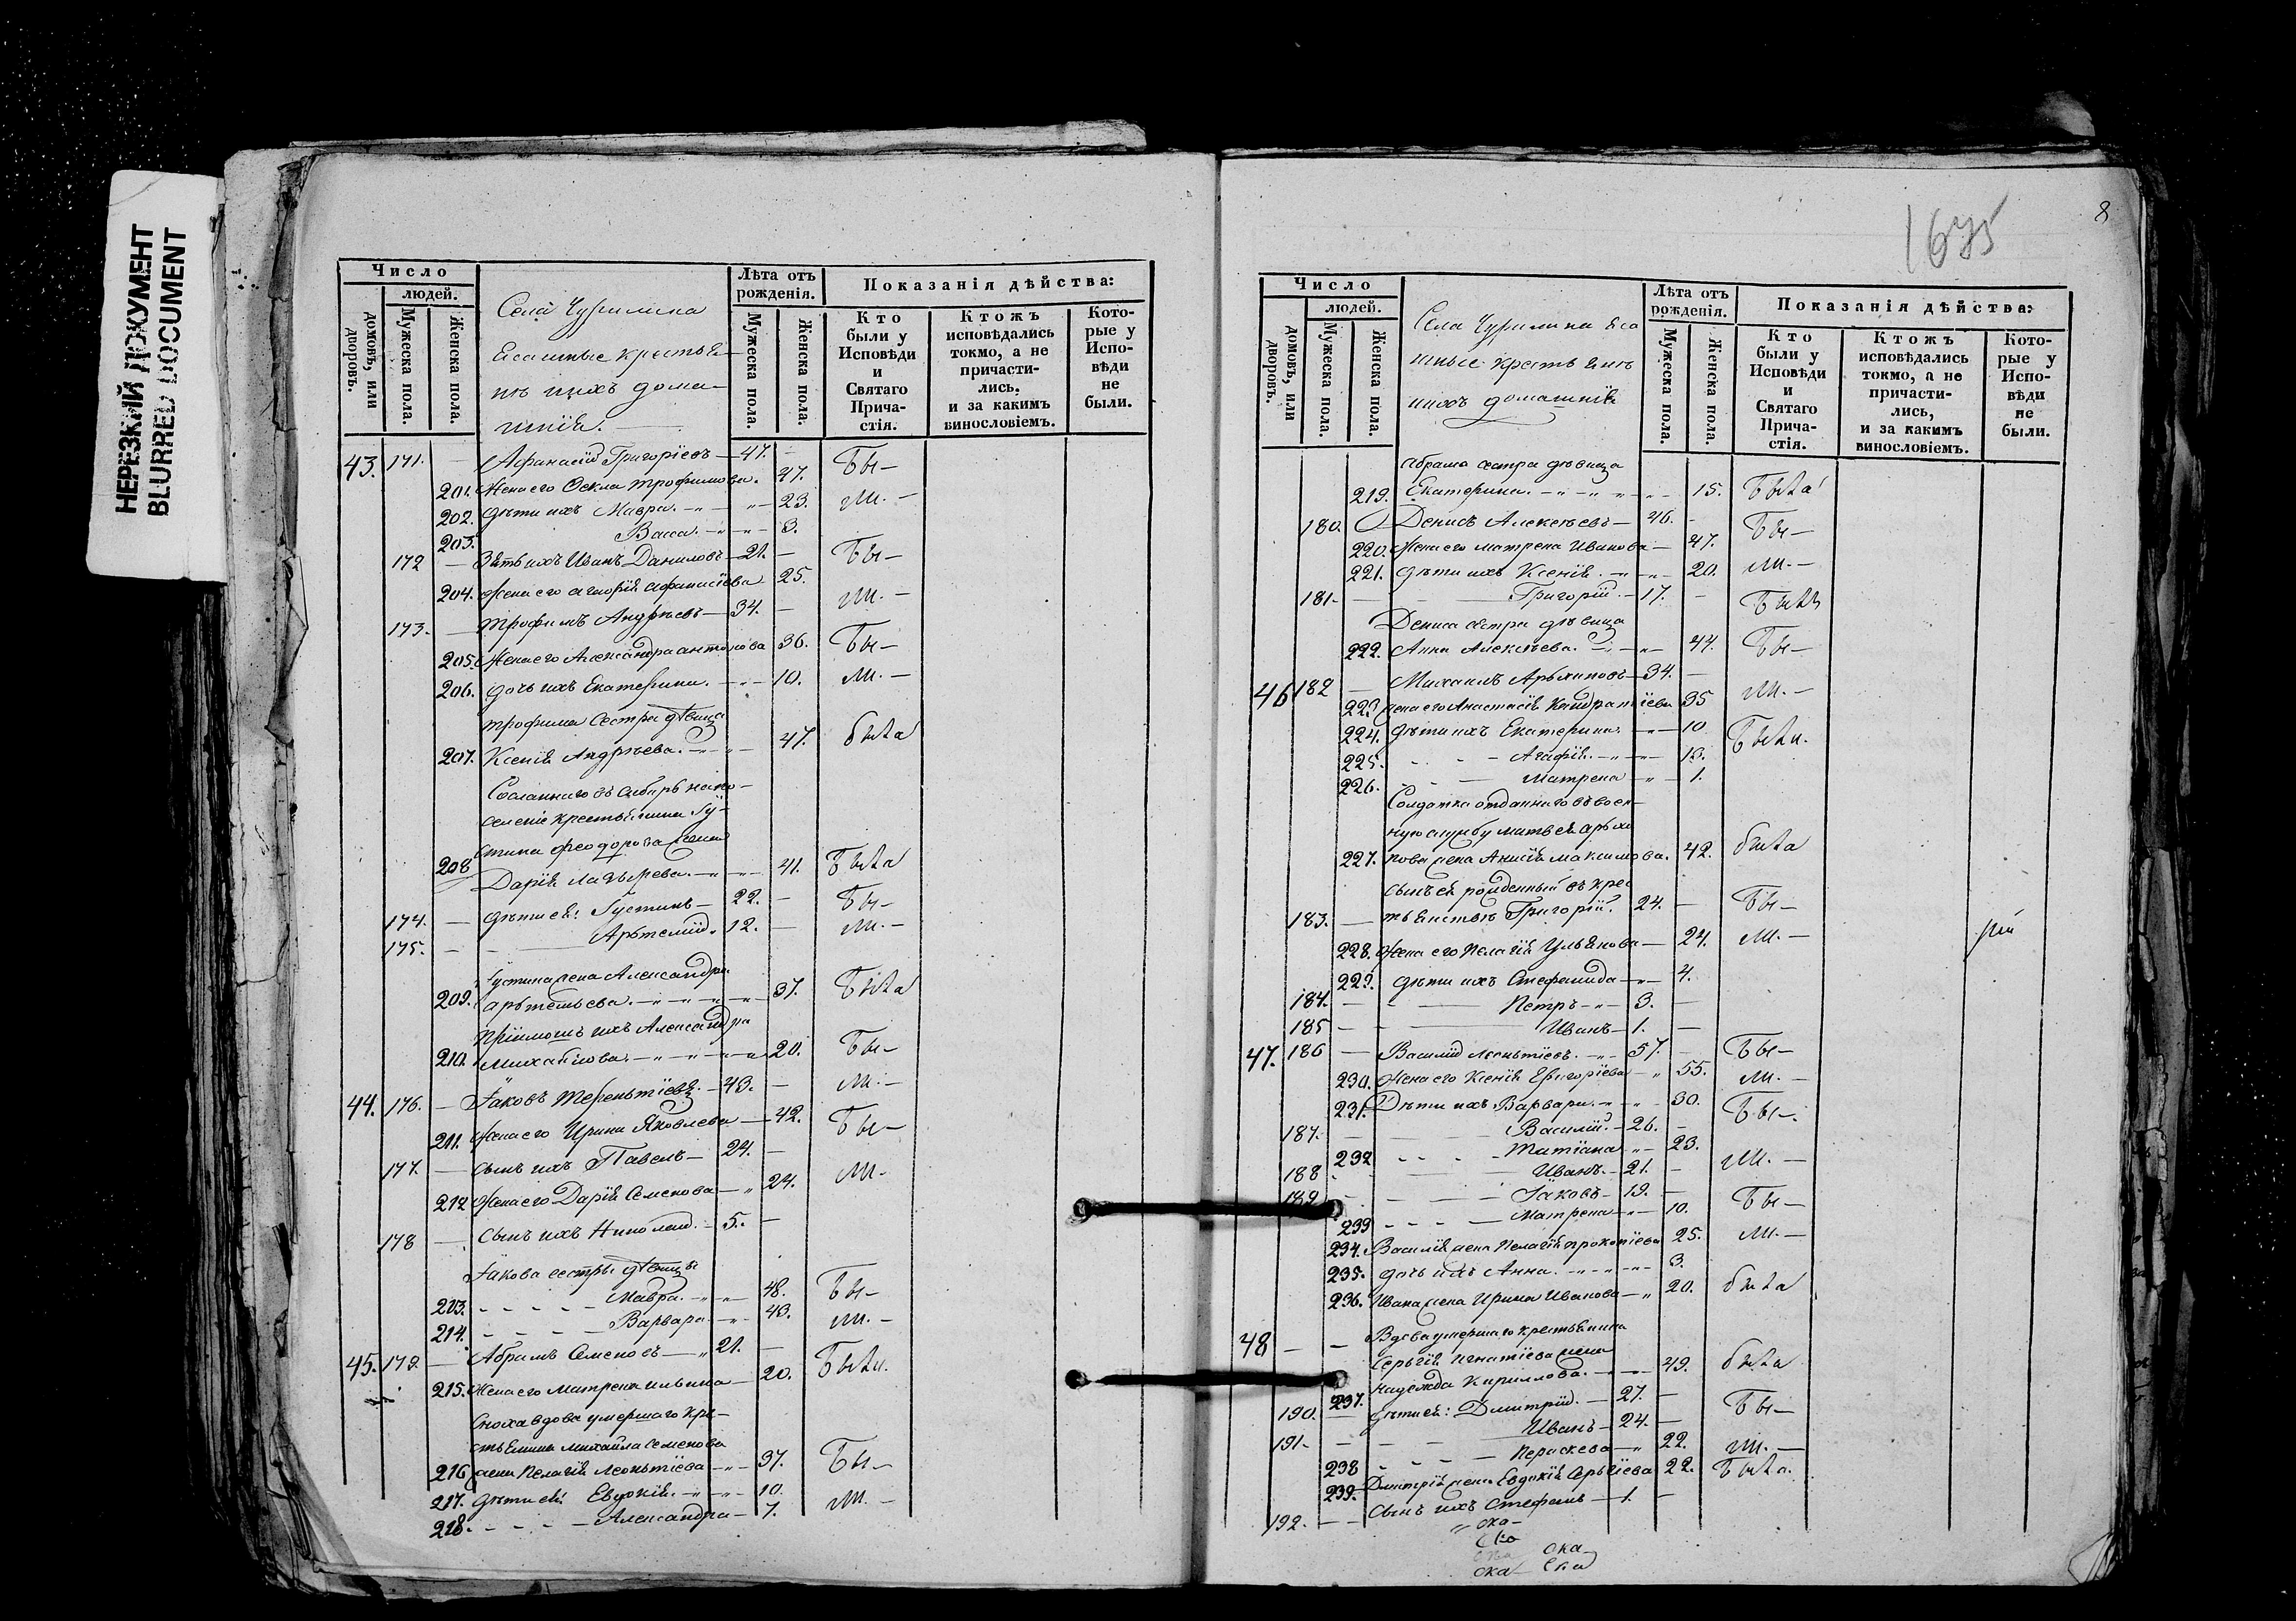 НЕРЕЗКИЙ ДОКУМЕНТ
BLURRED DOCUMENT
Число
людей.
домовъ, или дворовъ.
Мужеска пола.
Женска пола.
Села Чурилина
Ясашные крестья-
не ихъ дома-
шнія.
Лѣта отъ рожденія.
Мужеска пола.
Женска пола.
Показанія дѣйства:
Кто были у Исповѣди и Святаго Прича-стія.
Ктожъ исповѣдались токмо, а не причасти-лись. и за какимъ винословіемъ.
Кото-рые у Испо-вѣди не были.
43. 171. — Афанасій Григоріевъ — 47. — Бы-
201. Жена его Фекла Трофимова. 47.
202. Дѣти ихъ Мавра. — 23. ли. —
203. Васса. — 3.
172 — Зять ихъ Иванъ Даниловъ — 21. — Бы-
204. Жена его Агафія Афанасіева 25. ли. —
173. — Трофимъ Андреевъ — 34. —
205. Жена его Александра Антонова 36. Бы-
206. дочь ихъ Екатерина. — 10. ли. —
Трофима сестра дѣвица
207. Ксенія Андреева. — 47. была
Сосланнаго въ Сибирь на по-
селеніе крестьянина Іу-
стина Феодорова жена
208 Дарія Лазырева. — 41. Была
174. — дѣти ея: Іустинъ — 22. — Бы-
175. — Артемій. 12. — ли. —
Іустина жена Александра
209. Артемьева. — 37. Была
Пріимошъ ихъ Александра
210. Михайлова. — 20. Бы-
44. 176. — Іаковъ Терентіевъ. — 43. — ли. —
211. Жена его Ирина Яковлева — 42. Бы-
177. — сынъ ихъ Павелъ — 24. —
212 Жена его Дарія Семенова — 24. ли.
178 — сынъ ихъ Николай. — 5. —
Іакова сестры дѣвицы
213. Мавра. — 48. Бы-
214. Варвара — 43. ли. —
45. 179. — Абрамъ Семеновъ — 21. —
215. Жена его Матрена Ильина — 20. Были.
Сноха вдова умершаго кре-
стьянина Михайла Семенова
216 жена Пелагія Леонтіева — 37. Бы-
217. дѣти ея: Евдокія. — 10.
218. Александра — 7. ли. —
1675
8
Число
людей.
домовъ, или дворовъ.
Мужеска пола.
Женска пола.
Села Чурилина Яса
шные крестьяне
ихъ домашнія
Лѣта отъ рожденія.
Мужеска пола.
Женска пола.
Показанія дѣйства:
Кто были у Исповѣди и Святаго Прича-стія.
Ктожъ исповѣдались токмо, а не причасти-лись, и за какимъ винословіемъ.
Кото-рые у Испо-вѣди не были.
Абрама сестра дѣвица
219. Екатерина. — 15. Была
180. Денисъ Алексѣевъ — 46. — Бы-
220. Жена его Матрена Иванова — 47.
221. дѣти ихъ Ксенія. — 20. ли. —
181. — Григорій. — 17. — Былъ
Дениса сестра дѣвица
222. Анна Алексѣева. — 44. Бы-
46 182 — Михаилъ Архиповъ — 34. —
223 жена его Анастасія Кандратіева 35 ли. —
224. дѣти ихъ Екатерина. — 10
225. Агафія. — 13. Были.
226. Матрена — 1.
Солдатка отданнаго въ воен-
ную службу Матвея Архи
227. пова жена Анисія Максимова. 42. была
сынъ ея рожденный въ крес
183. — тьянствѣ Григорій. 24. — Бы-
228. Жена его Пелагія Ульянова — 24. ли. —
229. дѣти ихъ Стефанида — 4.
184. — Петръ — 3. —
185 — Иванъ — 1. —
47. 186 — Василій Леонтіевъ. — 57. — Бы-
230. Жена его Ксенія Григоріева — 55. ли. —
231. Дѣти ихъ Варвара. — 30. Бы-
187. — Василій. — 26. —
232 Татіана — 23.
188 Иванъ. — 21. — ли. —
189 — Іаковъ — 19. —
233 — Матрена — 10. Бы-
234. Василія жена Пелагія Прокопіева 25. ли. —
235. дочь ихъ Анна. — 3.
236. Ивана жена Ирина Иванова — 20. была
48 — — Вдова умершаго крестьянина
Сергія Игнатіева жена
237. Надежда Кириллова. — 49. была
190. — дѣти ея: Дмитрій. — 27. — Бы-
191. — Иванъ — 24. —
238 — Параскева — 22. ли. —
239. Дмитрія жена Евдокія Сергіева 22. Была.
192. — — Сынъ ихъ Стефанъ — 1. —
ска-
ска
ска